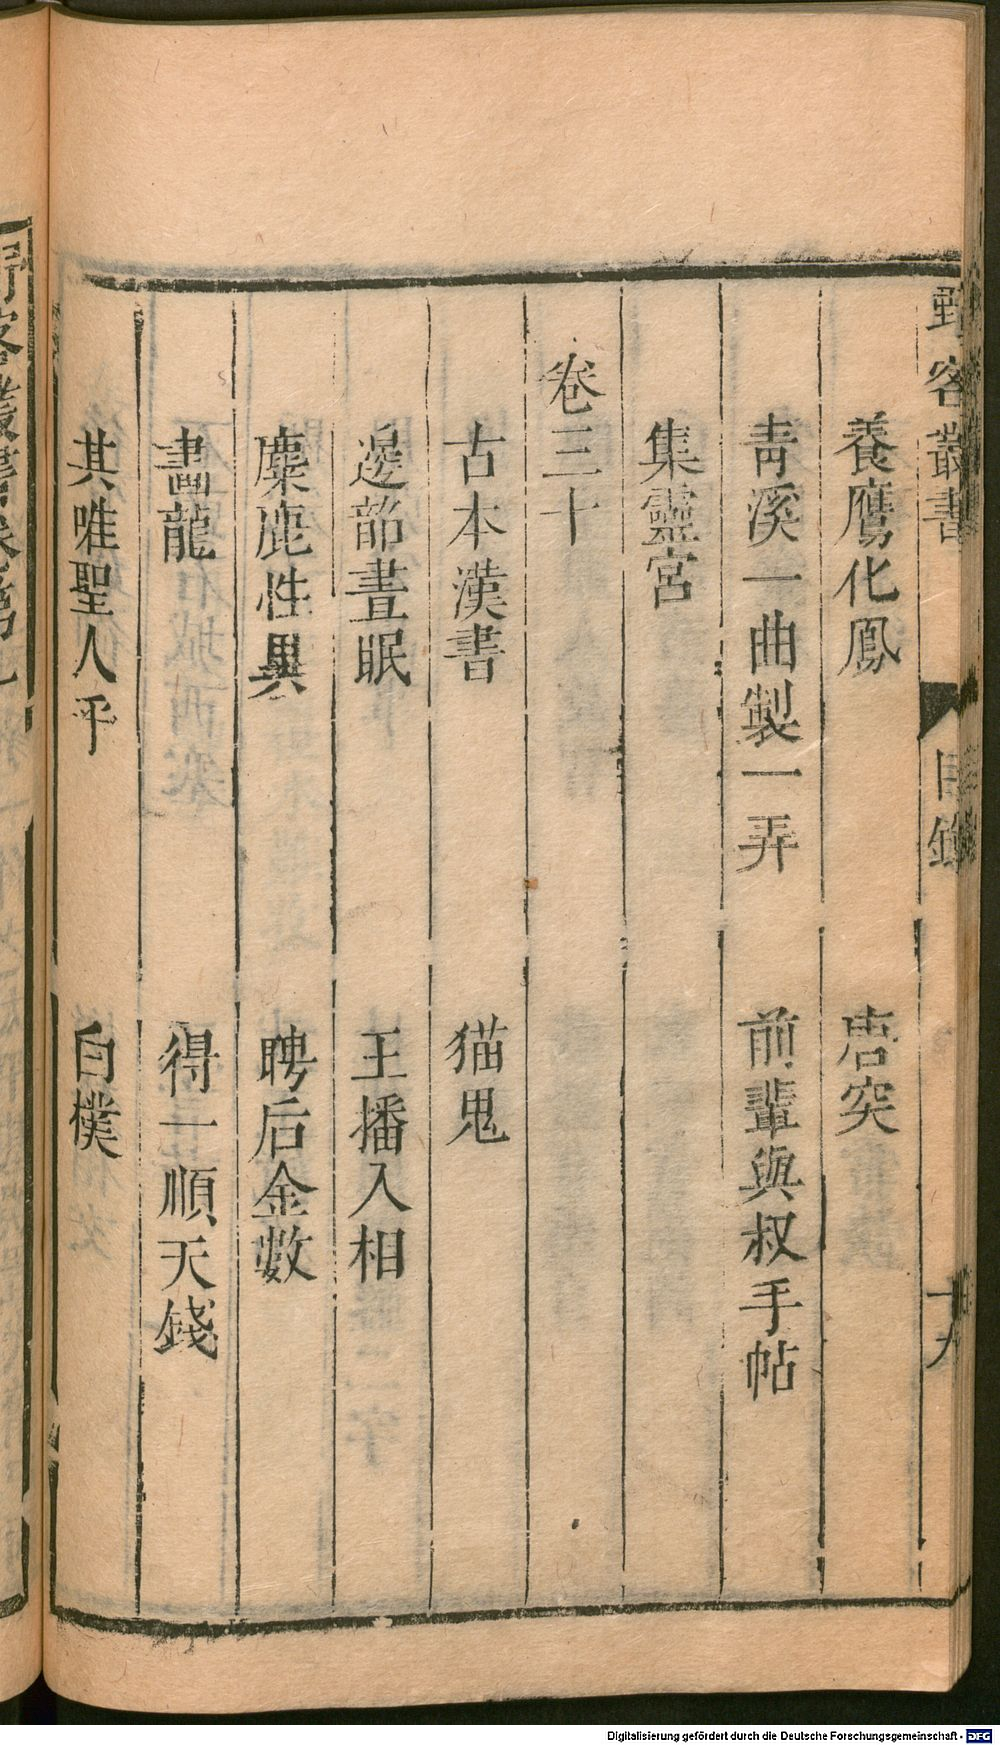 野客叢書 目錄 十九
養鷹化鳳 唐突
青溪一曲製一弄 前輩與叔手帖
集靈宮
卷三十
古本漢書 猫鬼
邊韶晝眠 王播入相
麋鹿性異 聘后金數
畫龍 得一順天錢
其唯聖人乎 白樸
野客叢書卷第
Digitalisierung gefördert durch die Deutsche Forschungsgemeinschaft - DFG